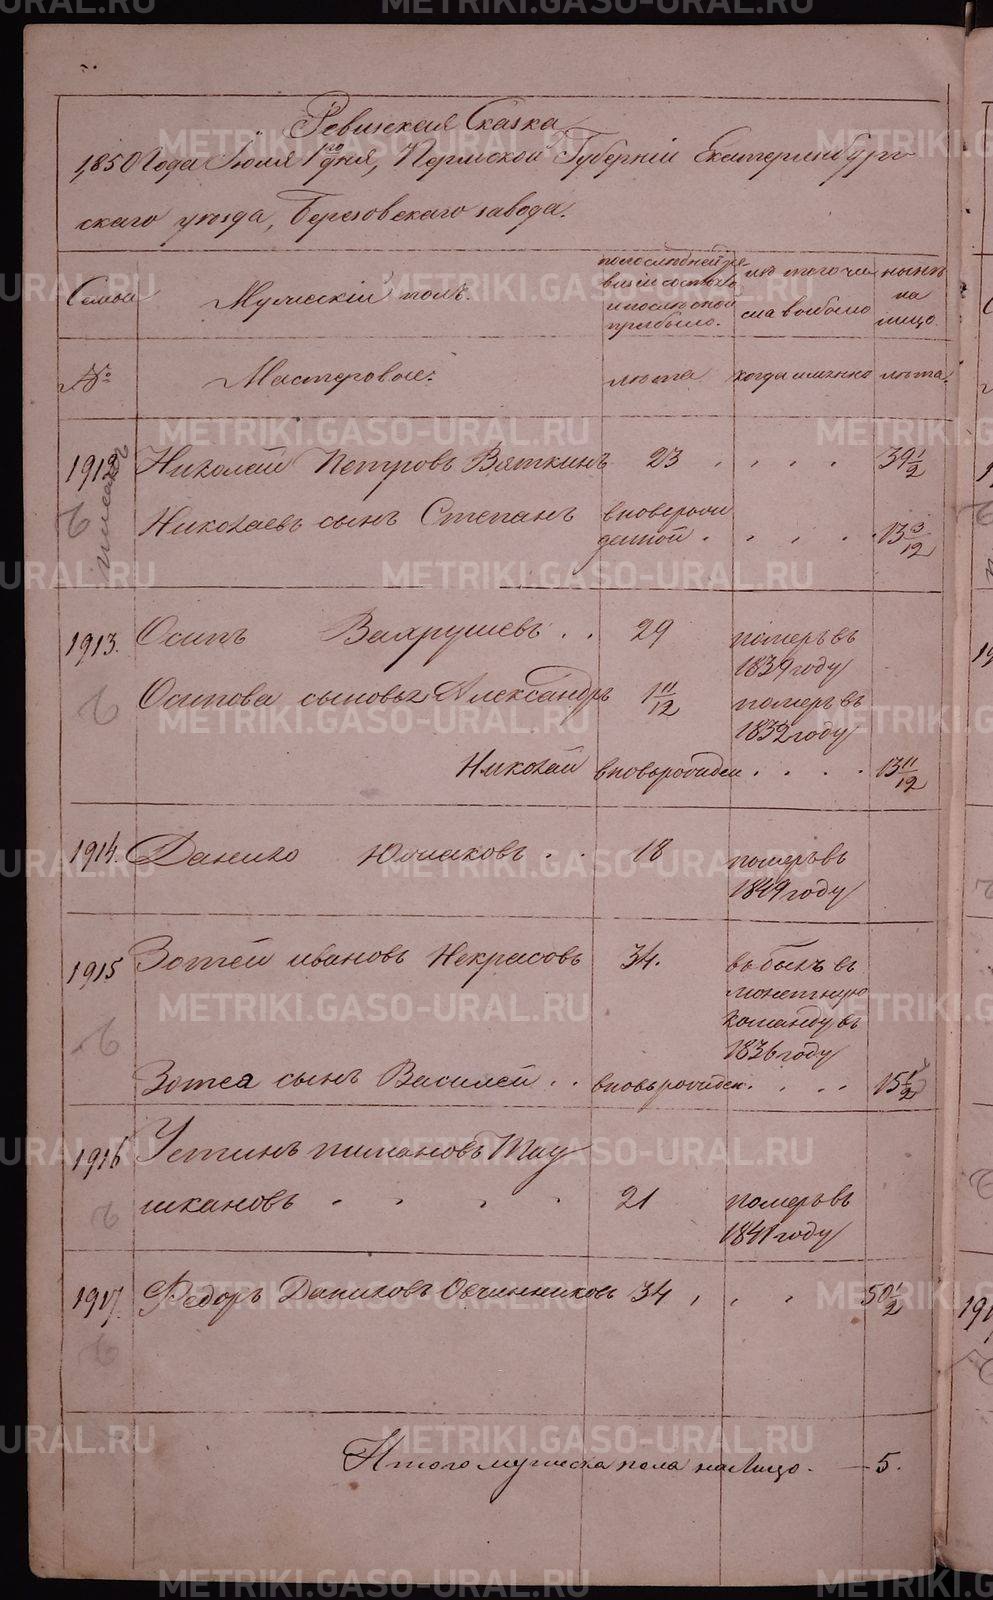 Ревизская Сказка
1850 Года Июля 1го дня, Пермской Губерніи Екатеринбург-
скаго уѣзда, Березовскаго завода.
Семьи
Мужескій полъ.
по послѣдней ре-
визіи состояло
и послѣ оной
прибыло.
изъ того чи
сла выбыло
нынѣ
на
лицо
№
Мастеровые:
лѣта
когда именно
лѣта.
1912
Николай Петровъ Вяткинъ 23 39 1/2
Николаевъ сынъ Степанъ вноворож
денной 13 3/12
1913. Осипъ Вахрушевъ 29 померъ въ
1839 году
Осипова сыновья Александръ 1 11/12 померъ въ
1832 году
Николай вновьрожден 13 11/12
1914. Данило Юшковъ 18 померъ въ
1849 году
1915 Зотей ивановъ Некрасовъ 34. выбылъ въ
монетную
команду въ
1836 году
Зотеа сынъ Василей вновьрожден. 15 1/2
1916 Устинъ пимановъ Тау
шкановъ 21 померъ въ
1841 году
1917. Федоръ Даниловъ Овчинниковъ 34 50 1/2
Итого мужеска пола на лицо 5.
METRIKI.GASO-URAL.RU